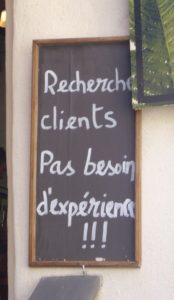 Recherche
clients
Pas besoin
d'expérience
!!!